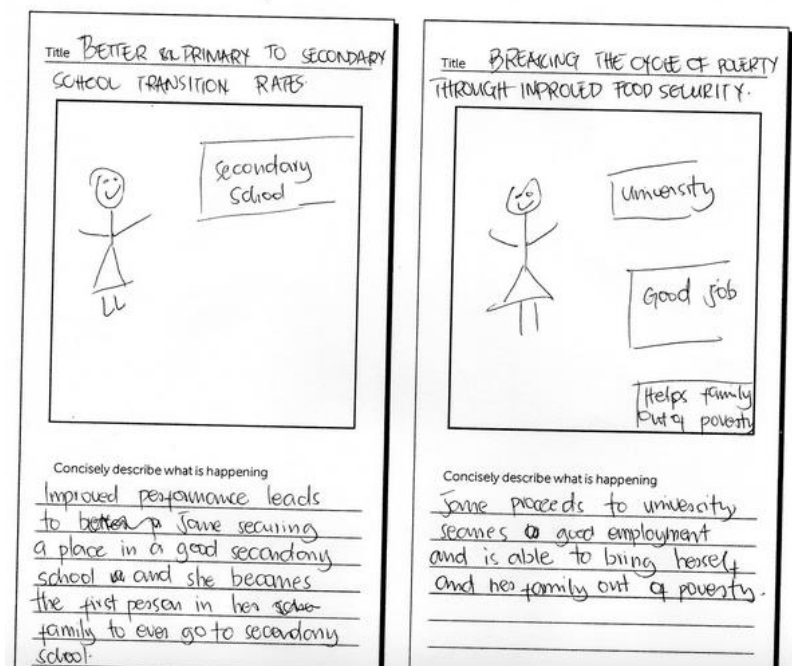 Title BETTER PRIMARY TO SECONDARY
SCHOOL TRANSITION RATES.
secondary
school
Concisely describe what is happening
Improved performance leads
to Jane securing
a place in a good secondary
school and she becomes
the first person in her
family to ever go to secondary
school.
Title BREAKING THE CYCLE OF POVERTY
THROUGH IMPROVED FOOD SECURITY.
university
Good job
Helps family
out of poverty
Concisely describe what is happening
Jane proceeds to university,
secures good employment
and is able to bring herself
and her family out of poverty.